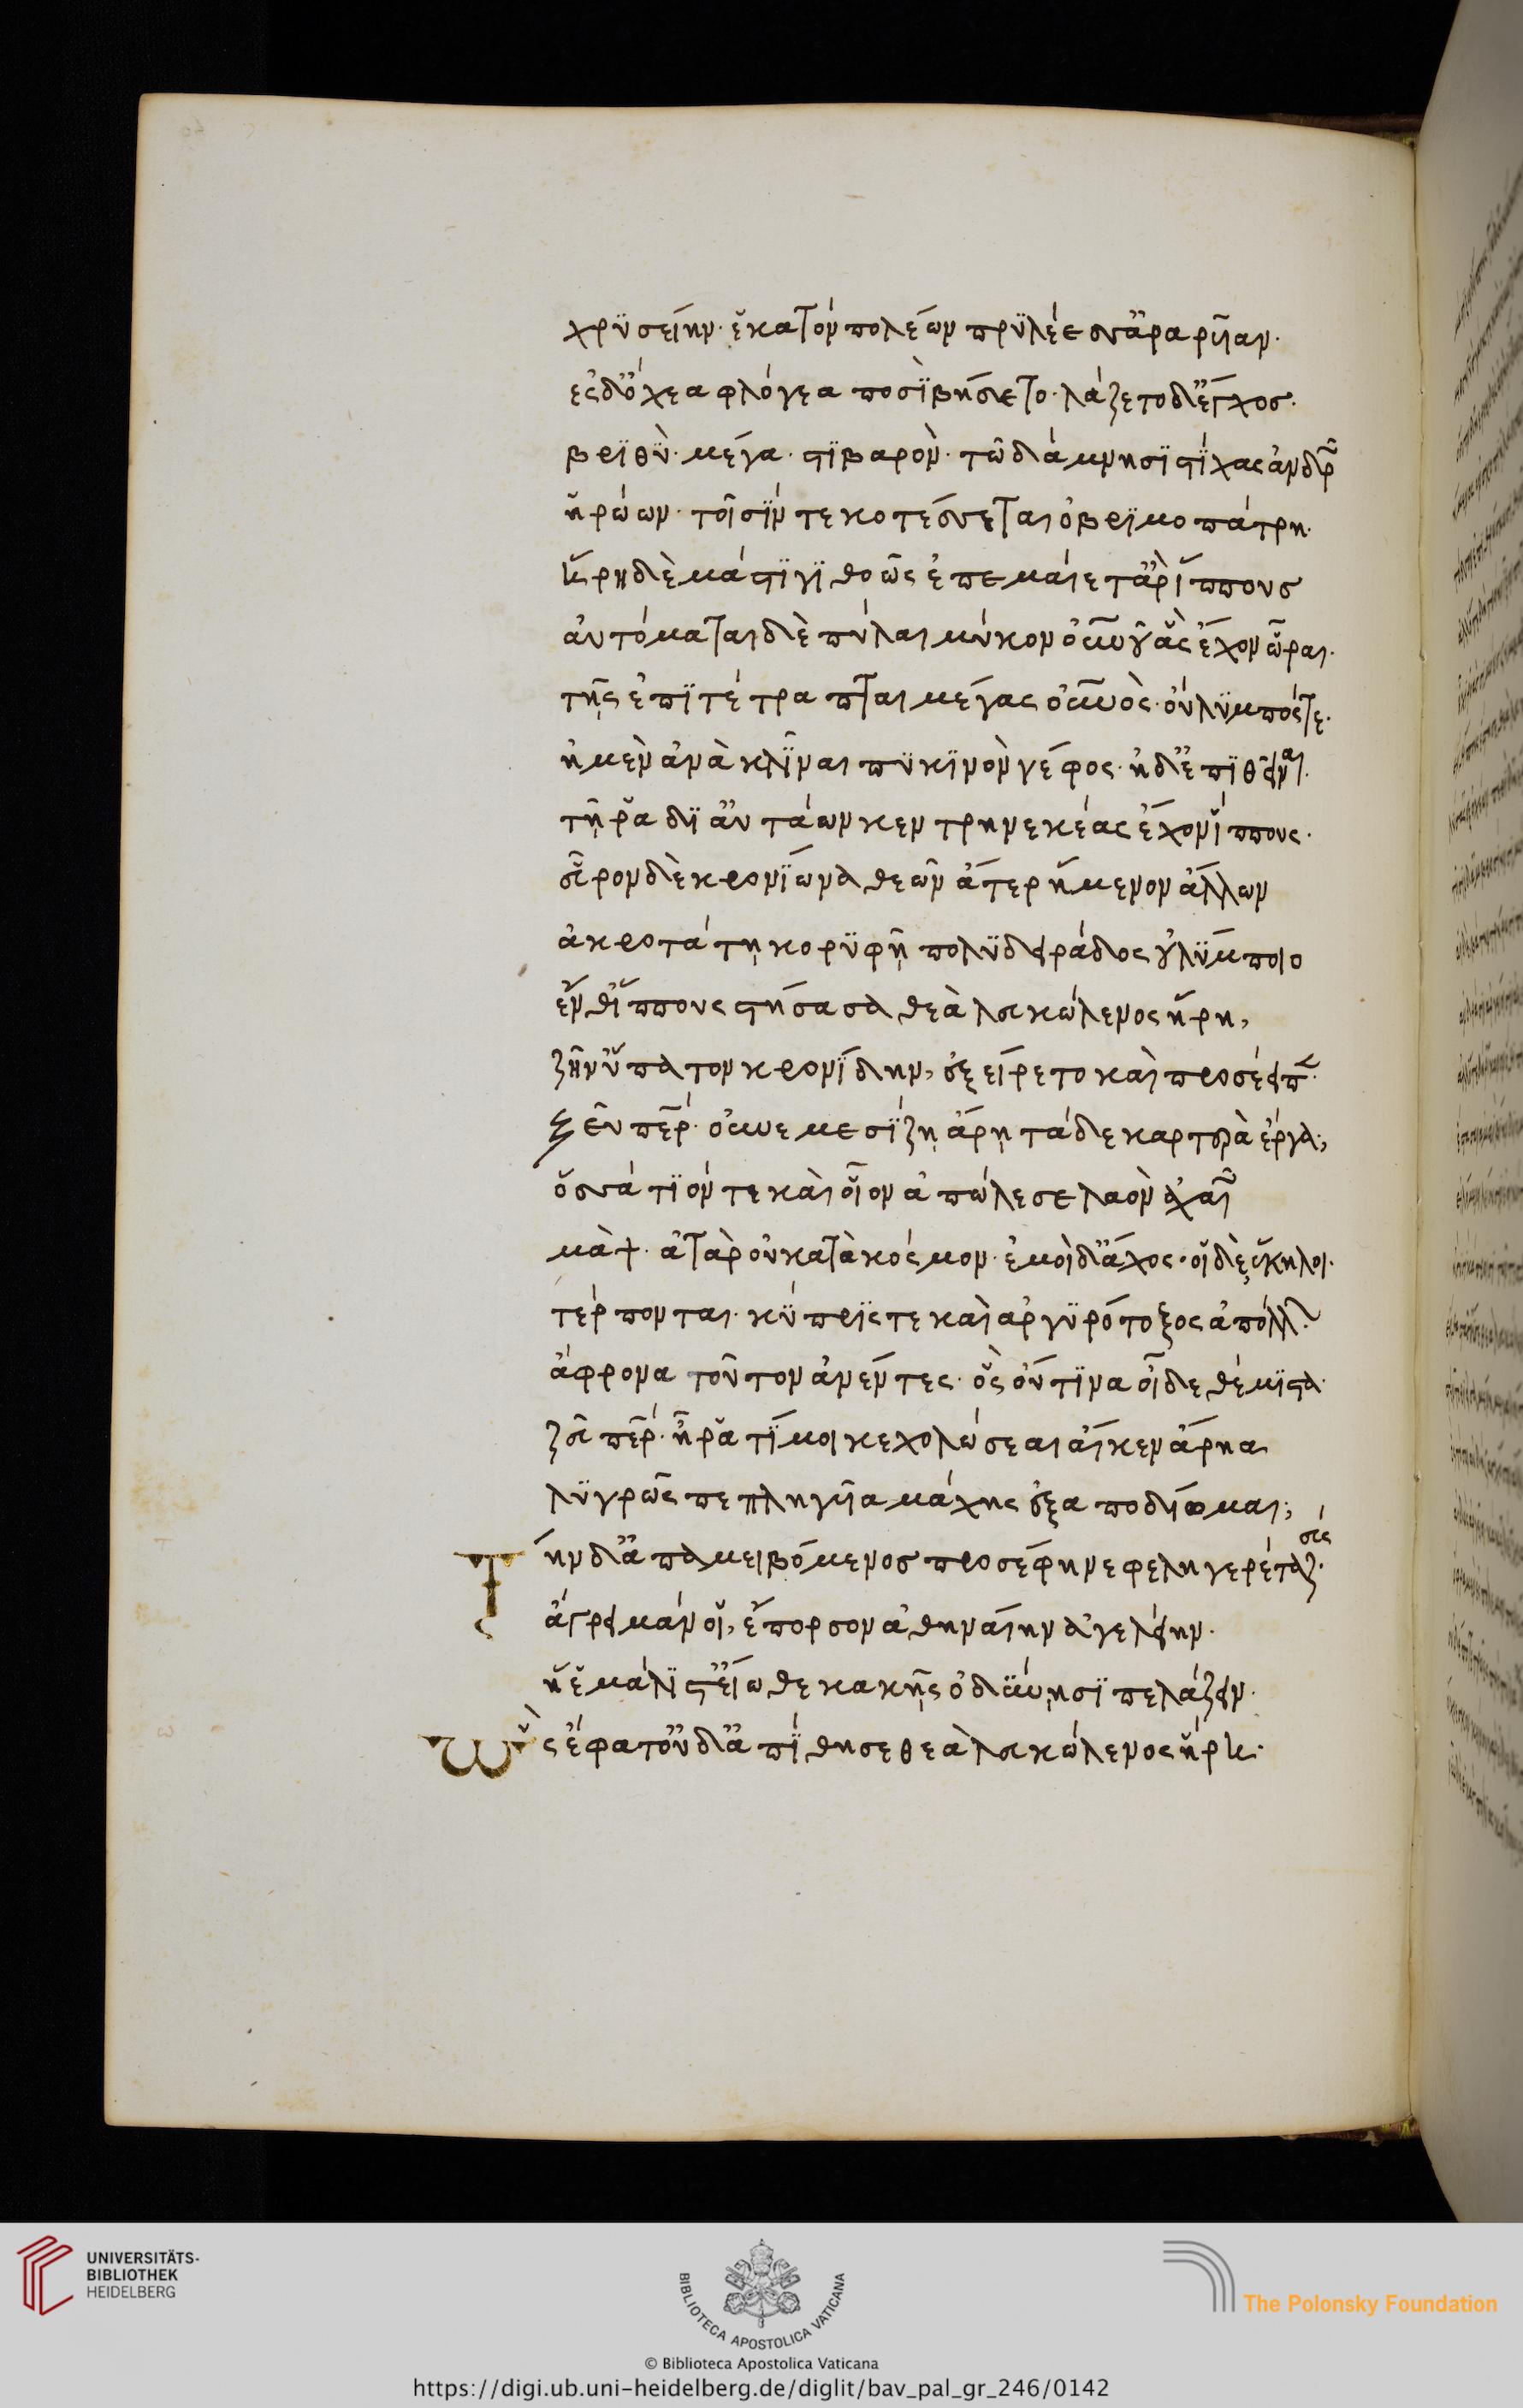 χρϋσείην· ἑκατὸν πολέων πρϋλέεσσ' ἄραρυῖαν·
ἐς δ' ὄχεα φλόγεα ποσὶ βήσετο· λάζετο δ' ἔγχος·
βρϊθὺ· μέγα· στϊβαρὸν· τῶ δάμνησϊ στίχας ἀνδρῶν
ἡρώων· τοῖσίν τε κοτέσσεται ὀβρϊμοπάτρη·
ἥρη δὲ μάστϊγϊ θοῶς ἐπεμαίετ' ἄρ' ἵππους
ἀυτόμαται δὲ πύλαι μύκον οὐρανοῦ ἃς ἔχον ὧραι·
τῆς ἐπϊτέτραπται μέγας οὐρανὸς· οὔλϋμπός τε·
ἠμὲν ἀνακλῖναι πϋκϊνὸν νέφος· ἠδ' ἐπϊθεῖναι·
τῆ ρἁ δϊ' ἀυτάων κεντρηνεκέας ἔχον ἵππους·
εὗρον δὲ κρονίωνα θεῶν ἄτερ ἥμενον ἄλλων
ἀκροτάτη κορϋφῆ πολϋδειράδος οὐλύμποιο
ἔνθ' ἵππους στήσασα θεὰ λευκώλενος ἥρη,
ζῆν' ὕπατον κρονίδην, ἐξείρετο καὶ προσέειπε·
ζεῦ πάτερ· οὐ νεμεσίζη ἄρη τάδε καρτερὰ ἔργα,
ὁσσάτϊόν τε καὶ οἷον ἀπώλεσε λαὸν ἀχαιῶν
μὰψ· ἀτὰρ οὐ κατὰ κόσμον· ἐμοὶ δ' ἄχος· οἱ δὲ ἕκηλοι·
τέρπονται· κύπρϊς τε καὶ ἀργϋρότοξος ἀπόλλων
ἄφρονα τοῦτον ἀνέντες· ὃς οὔτϊνα οἶδε θέμϊστα·
ζεῦ πάτερ· ἦ ρἁ τί μοι κεχολώσεαι αἴ κεν ἄρηα
λϋγρῶς πεπληγυῖα μάχης ἐξαποδίωμαι;
Τὴν δ' ἀπαμειβόμενος προσέφη νεφεληγερέτα ζεύς·
ἄγρει μάν οἱ, ἔπορσον ἀθηναίην ἀγελείην·
ἥ ἑ μάλϊστ' εἴωθε κακῆς ὀδύνησϊ πελάζειν·
Ὣς ἔφατ' οὐδ' ἀπίθησε θεὰ λευκώλενος ἥρη·
UNIVERSITÄTS-
BIBLIOTHEK
HEIDELBERG
BIBLIOTECA APOSTOLICA VATICANA
The Polonsky Foundation
© Biblioteca Apostolica Vaticana
https://digi.ub.uni-heidelberg.de/diglit/bav_pal_gr_246/0142